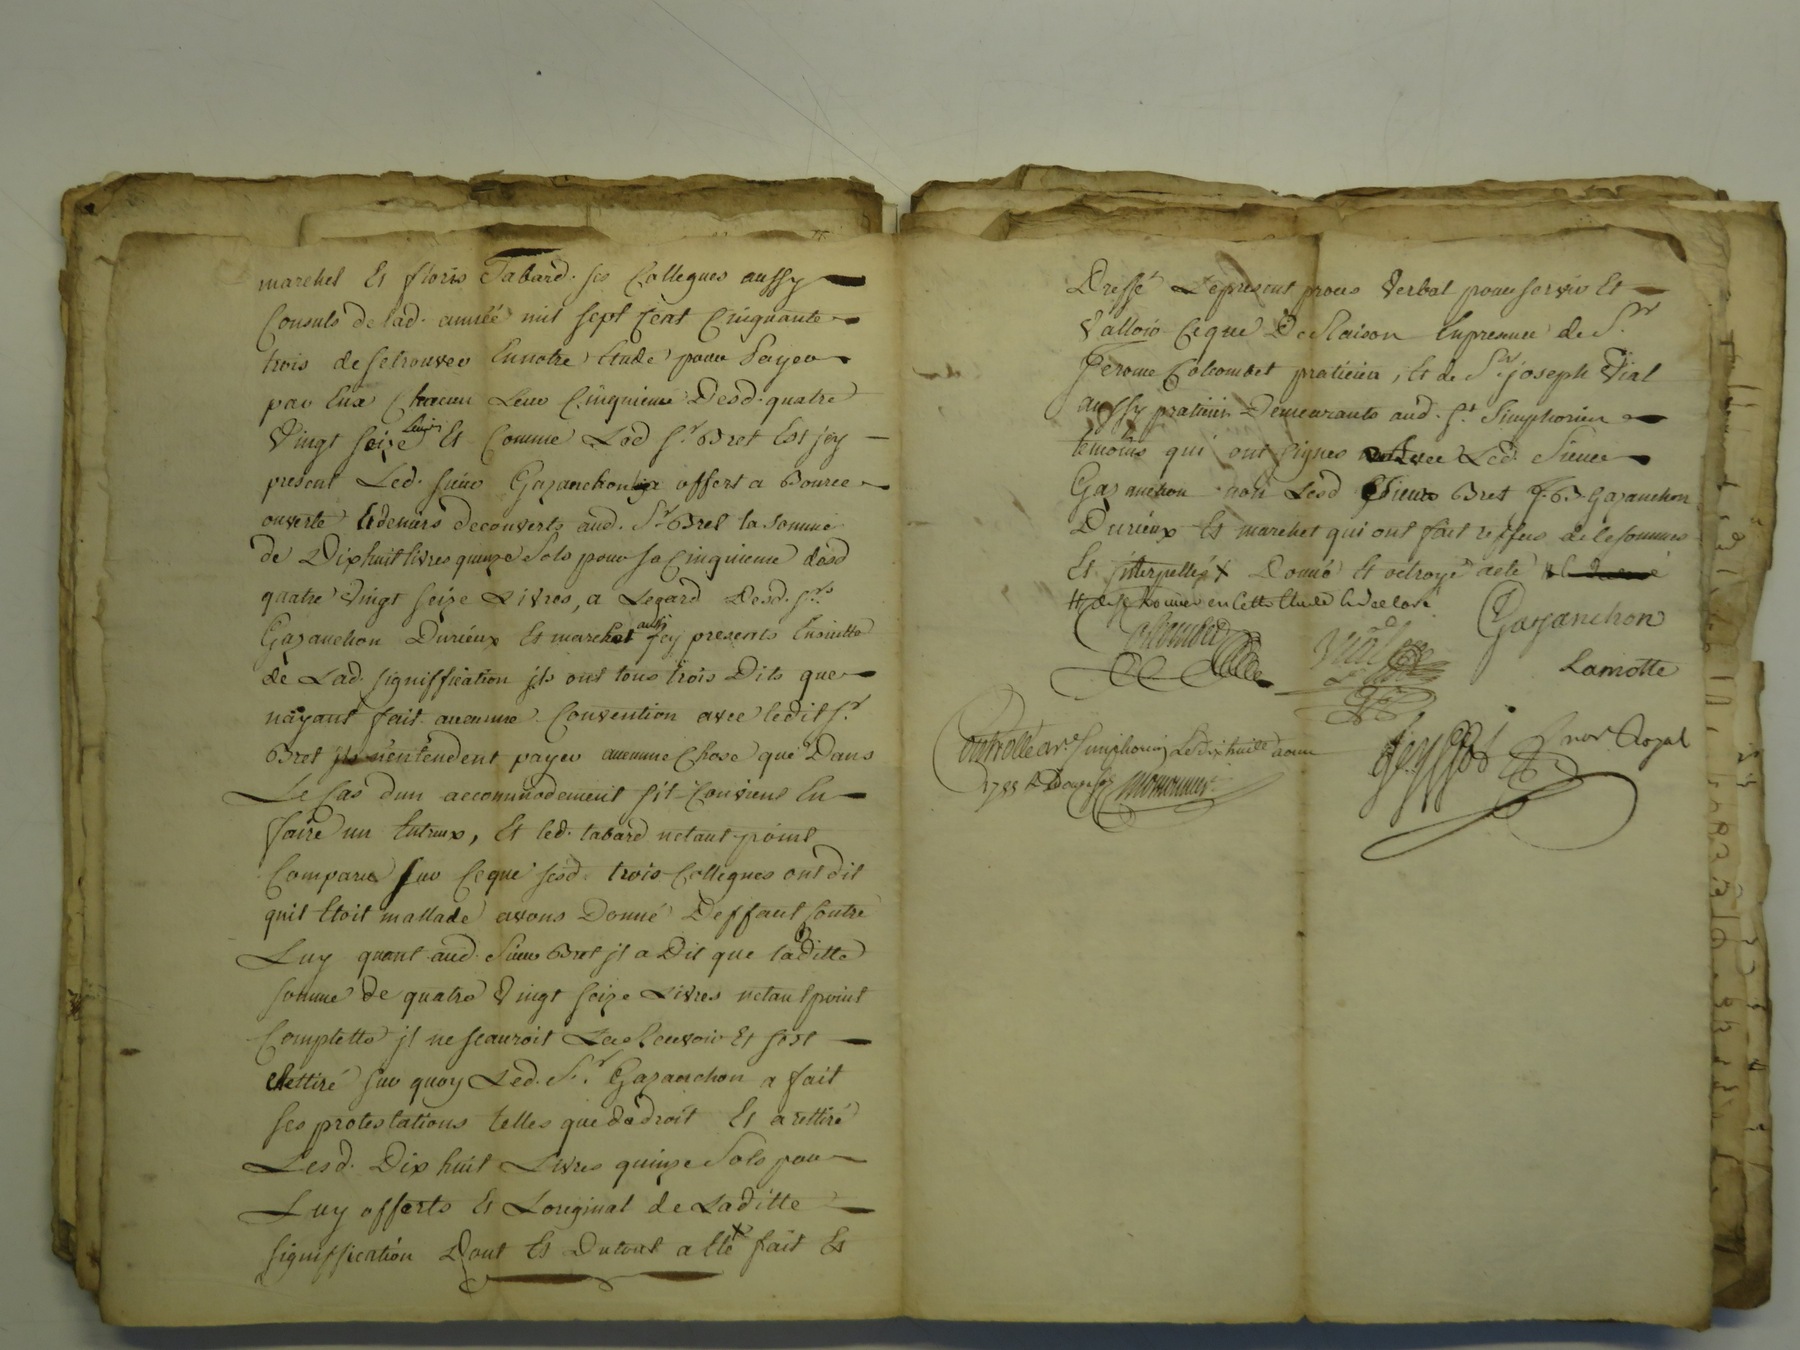 marchet Et floris Tabard ses Collegues aussy
Consuls de lad. année mil sept Cent Cinquante
trois de se trouver En notre Etude pour Payer
par Eux Chacun Leur Cinquieme Desd. quatre
Vingt seize Livres Et Comme Led Sr. Bret Est jcy
present Led. sieur Gazanchon a offert a Bource
ouverte Et deniers decouverts aud. Sr. Bret la somme
de Dix huit livres quinze Sols pour sa Cinquieme desd
quatre Vingt seize Livres, a Legard Desd. Srs
Gazanchon Durieux Et marchet aussi jcy presents Ensuitte
de Lad. signiffication jls ont tous trois Dits que
nayant fait aucunne Convention avec ledit Sr.
Bret jls nentendent payer aucunne Chose que Dans
Le Cas dun accommodement sil Conviens En
faire un Entreux, Et led. tabard netant point
Comparu sur Ceque sesd. trois Collegues ont dit
quil Etoit mallade avons Donné Deffaut Contre
Luy quant aud. Sieur Bret jl a Dit que laditte
somme de quatre Vingt seize Livres netant point
Complette jl ne scauroit La Recevoir Et sest
Rettiré sur quoy Led. Sr. Gazanchon a fait
ses protestations telles que de droit Et a rettiré
Lesd. Dix huit Livres quinze Sols par
Luy offerts Et Loriginal de Laditte
signiffication Dont Et Dutout a Eté fait Et
Dressé Le present proces Verbal pour servir Et
Valloir Ceque De Raison En presence de Sr.
Jerome Colcombet praticien, Et de Sr. joseph Vial
aussy praticien Demeurants aud. St. Simphorien
temoins qui ont signes avec Led. Sieur
Gazanchon non Lesd Sieurs Bret J.B. Gazanchon
Durieux Et marchet qui ont fait reffus de le sommes
Et jnterpellés X Donné Et octroyé acte
Gazanchon
Colcombet
Vial
Lamotte
Controllé a St. Simphorien Le Dix huit aoust
1755
nore Royal